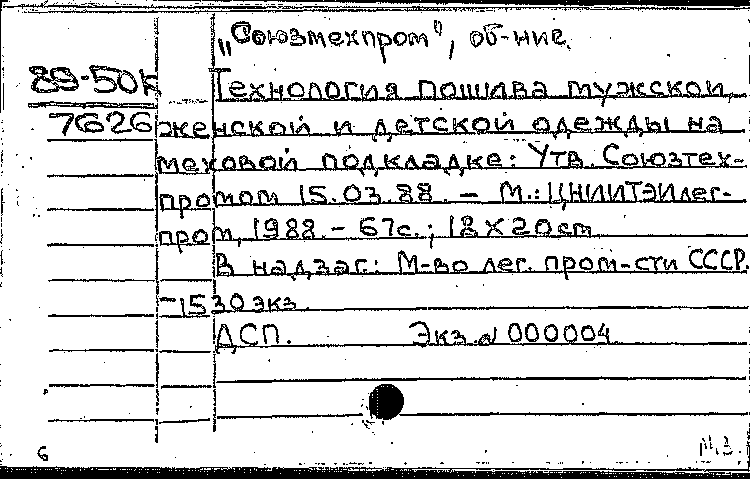 „Союзмехпром", об-ние.
89-50К Технология пошива мужской,
7626 женской и детской одежды на
меховой подкладке: Утв. Союзтех-
промом 15.03.88. – М.: ЦНИИТЭИлег-
пром, 1988. – 67с.; 18 X 20 cm
В надзаг.: М-во лег. пром-сти СССР.
– 1530 экз.
ДСП. Экз. № 000004
6 М.З.